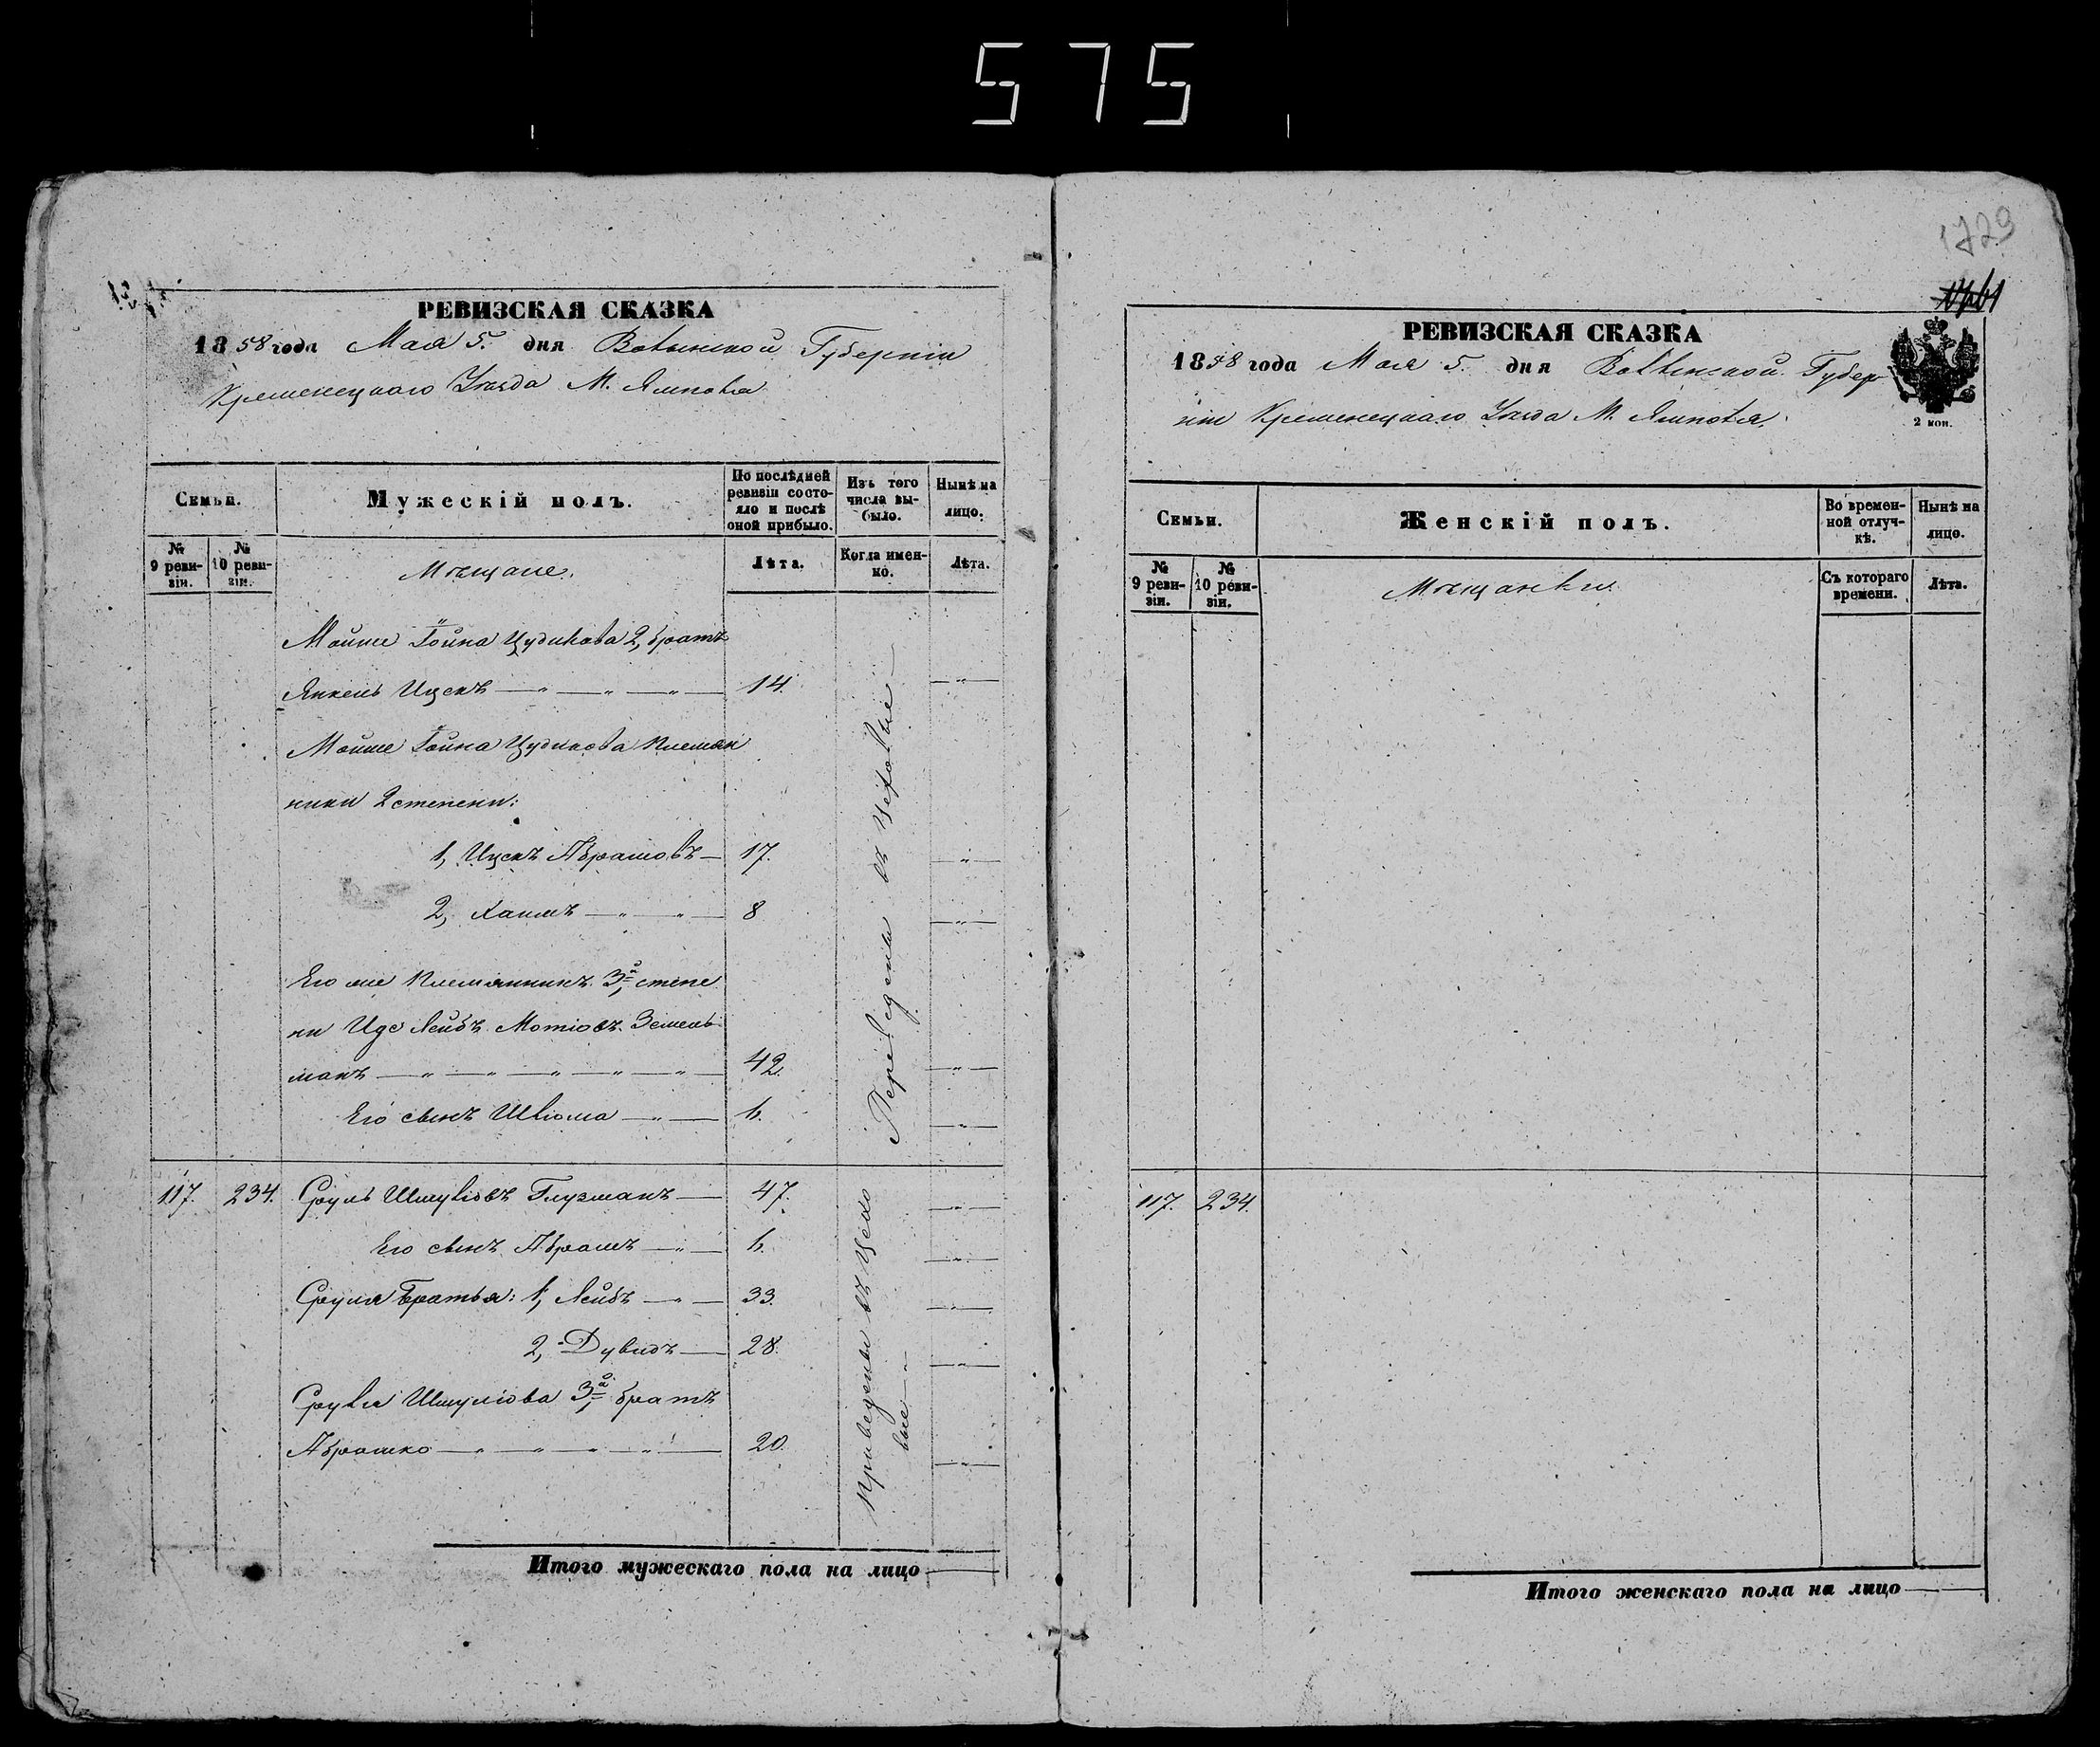 575
1729
РЕВИЗСКАЯ СКАЗКА
1858 года Мая 5. дня Волынской Губерніи
Кременецкаго Уѣзда М. Ямполя
Семьи.
Мужескій полъ.
По послѣдней ревизіи состояло и послѣ оной прибыло.
Изъ того числа выбыло.
Нынѣ на лицо.
№ 9 ревизіи.
№ 10 ревизіи.
Мѣщане.
Лѣта.
Когда именно.
Лѣта.
Мойше Гойна Цудикова 2, братъ
Янкель Ицекъ — 14.
Мойше Гойна Цудикова племян
ники 2 степени:
1, Ицекъ Абрамовъ — 17.
2, Хаимъ — 8
Его же племянникъ 3, степе
ни Иде Лейбъ Мотіовъ Зешель
манъ — 42.
Его сынъ Шліома — 6.
Переведены въ Цеховые
117. 234. Сруль Шмуліовъ Глузманъ — 47.
Его сынъ Абрамъ — 6.
Сруля братья: 1, Лейбъ — 33.
2, Дувидъ — 28.
Сруля Шмуліова 3й, братъ
Абрашко — 20.
приведены въ Цехо
вые
Итого мужескаго пола на лицо
РЕВИЗСКАЯ СКАЗКА
1858 года Мая 5. дня Волынской Губер
ніи Кременецкаго Уѣзда М. Ямполя.
2 коп.
Семьи.
Женскій полъ.
Во временной отлучкѣ.
Нынѣ на лицо.
№ 9 ревизіи.
№ 10 ревизіи.
Мѣщанки
Съ котораго времени.
Лѣта.
117. 234.
Итого женскаго пола на лицо